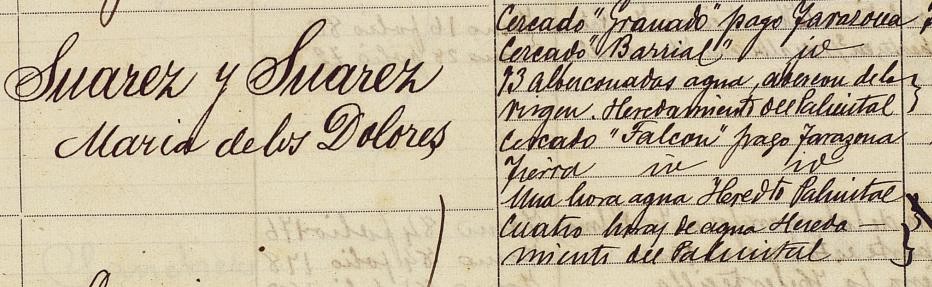 Suarez y Suarez
Maria de los Dolores
Cercado "Granado" pago Tarazona
Cercado "Barrial" id
13 alberconadas agua, albercon de la
Virgen. Heredamiento del Palmital
Cercado "Falcon" pago Tarazona
Tierra id id
Una hora agua Heredto Palmital
Cuatro horas de agua Hereda-
miento del Palmital